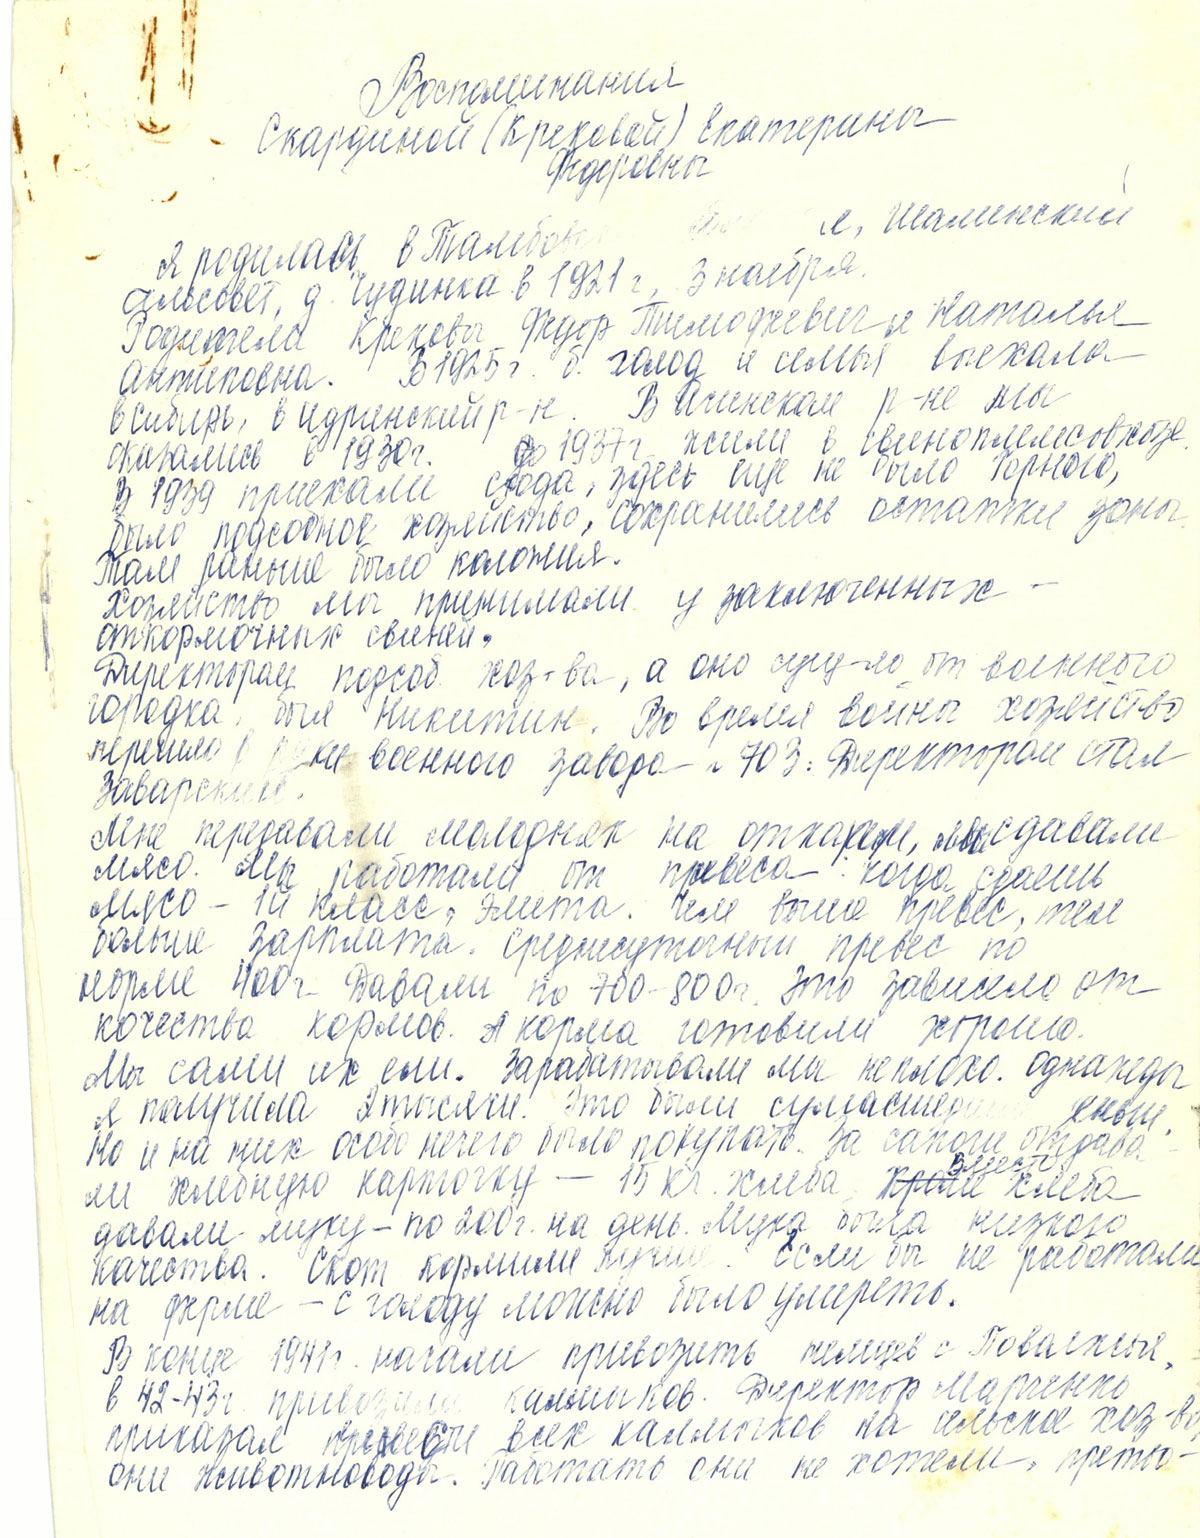 Воспоминания
Скардиной (Креховой) Екатерины
Федоровны
Я родилась в Тамбовс я, Шалинский
сельсовет, д. Чудинка в 1921 г., 3 ноября.
Родители Креховы Федор Тимофеевич и Наталья
Антиповна. В 1925 г. б. голод и семья выехала
в Сибирь, в Идринский р-н. В Ачинском р-не мы
оказались в 1930 г. До 1937 г. жили в свиноплемсовхозе.
В 1939 приехали сюда, здесь еще не было Горного,
было подсобное хозяйство, сохранились остатки зоны.
Там раньше была колония.
Хозяйство мы принимали у заключенных –
откормочных свиней.
Директором подсоб. хоз-ва, а оно сущ-ло от военного
городка, был Никитин. Во время войны хозяйство
перешло в руки военного завода – 703. Директором стал
Заварский.
Мне передавали молодняк на откорм, мы сдавали
мясо. Мы работали от привеса: когда сдаешь
мясо – 1й класс, элита. Чем выше превес, тем
больше зарплата. Среднесуточный превес по
норме 400 г. Давали по 700-800 г. Это зависело от
качества кормов. А корма готовили хорошо.
Мы сами их ели. Зарабатывали мы неплохо. Однажды
я получила 2 тысячи. Это были сумасшед еньги.
Но и на них особо нечего было покупать. За сапоги отдава-
ли хлебную карточку – 15 кг. хлеба. Вместо хлеба
давали муку – по 200 г. на день. Мука была низкого
качества. Скот кормили лучше. Если бы не работали
на ферме – с голоду можно было умереть.
В конце 1941 г. начали привозить немцев с Поволжья,
в 42-43 г. привозили калмыков. Директор Марченко
приказал привести всех калмыков на сельское хоз-во,
они животноводы. Работать они не хотели, претво-